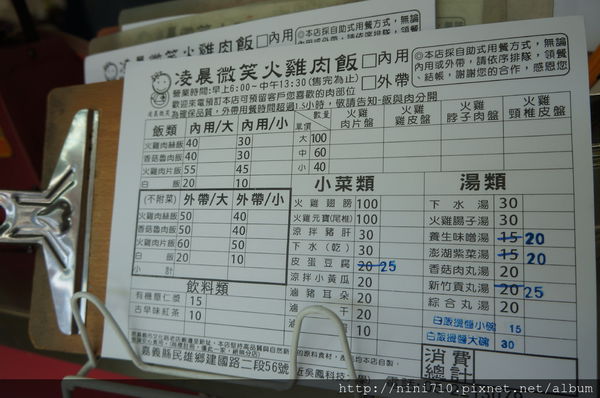 凌晨微笑火雞肉飯 □內用 □外帶
◎本店採自助式用餐方式，無論內用或外帶，請依序排隊，領餐、結帳，謝謝您的合作，感恩您
營業時間:早上6:00~中午13:30(售完為止)
歡迎來電預訂本店可預留客戶您喜歡的肉部位
為確保品質，外帶用餐時間超過1.5小時，敬請告知-飯與肉分開
飯類 內用/大 內用/小
火雞肉絲飯 40 30
香菇魯肉飯 40 30
火雞肉片飯 55 45
白飯 20 10
(不附菜) 外帶/大 外帶/小
火雞肉絲飯 50 40
香菇魯肉飯 50 40
火雞肉片飯 60 50
白飯 20 10
小計
飲料類
有機薏仁漿 15
古早味紅茶 10
數量 單價 火雞肉片盤 火雞雞皮盤 火雞脖子肉盤 火雞頸椎皮盤
大 100
中 60
小 40
小菜類
火雞翅膀 100
火雞元寶(尾椎) 100
涼拌豬肝 30
下水(乾) 30
皮蛋豆腐 20 25
涼拌小黃瓜 20
滷豬耳朵 20
滷 干 20
20
湯類
下水湯 30
火雞腸子湯 30
養生味噌湯 15 20
澎湖紫菜湯 15 20
香菇肉丸湯 20
新竹貢丸湯 20 25
綜合丸湯 20
白飯燙醬小碗 15
白飯燙醬大碗 30
消費總計
嘉義縣民雄鄉建國路二段56號
近吳鳳科技
http://nini710.pixnet.net/album